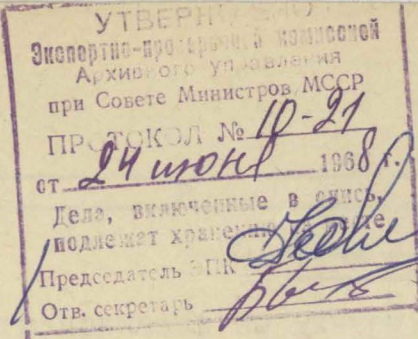 УТВЕРЖДЕНО
Экспертно-проверочной комиссией
Архивного управления
при Совете Министров МССР
ПРОТОКОЛ № 10-21
от 24 июня 1968 г.
Дела, включенные в опись,
подлежат хранению
Председатель ЭПК
Отв. секретарь